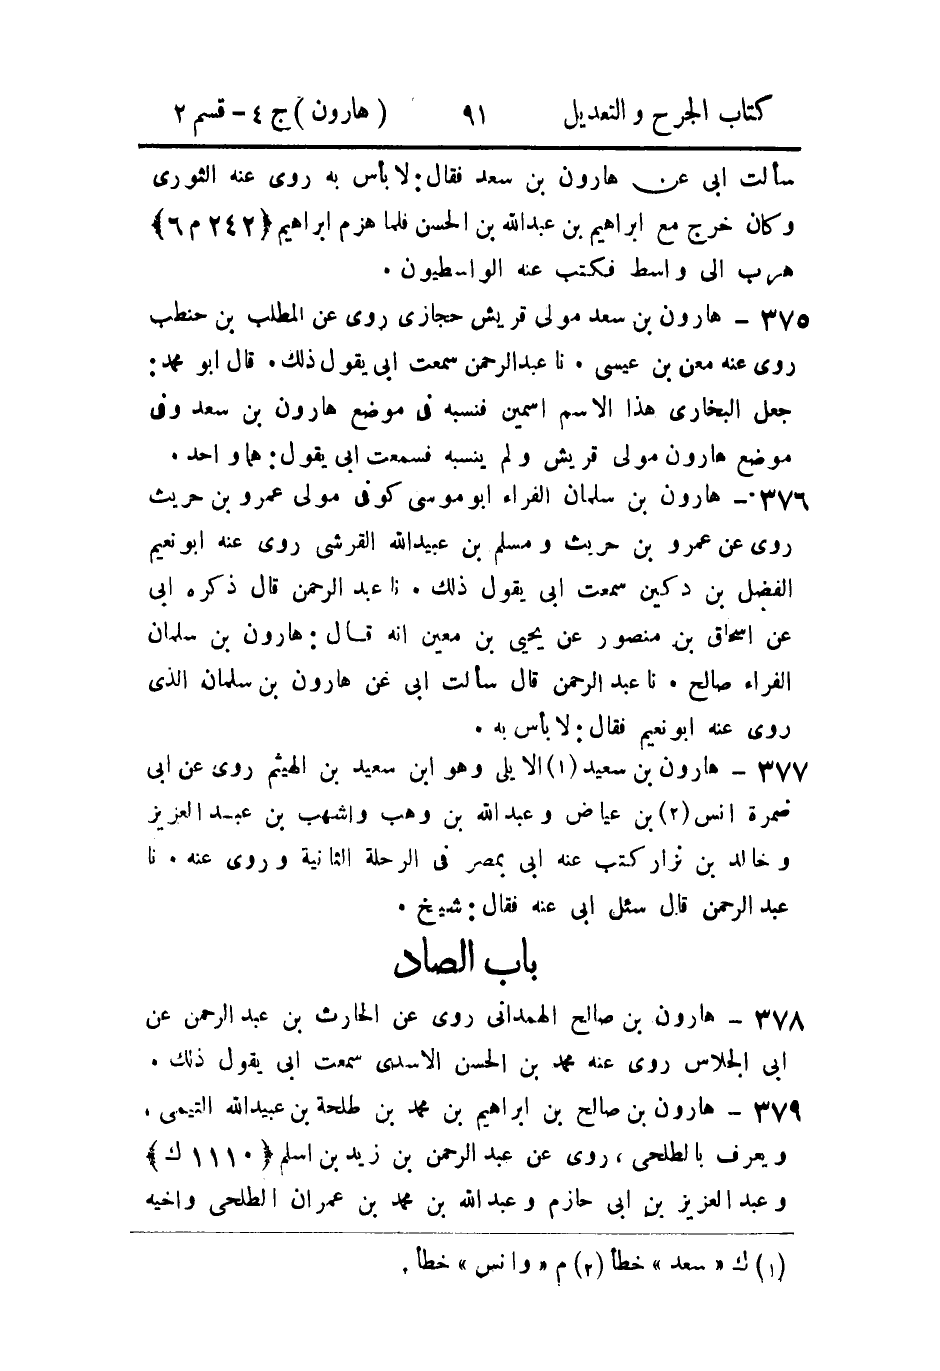 كتاب الجرح و التعديل ٩١ ( هارون ) ج ٤ - قسم ٢
سألت ابى عن هارون بن سعد فقال: لا بأس به روى عنه الثورى
وكان خرج مع ابراهيم بن عبدالله بن الحسن فلما هزم ابراهيم ﴿٢٤٢ م ٦﴾
هرب الى واسط فكتب عنه الواسطيون ٠
٣٧٥ - هارون بن سعد مولى قريش حجازى روى عن المطلب بن حنطب
روى عنه معن بن عيسى ٠ نا عبدالرحمن سمعت ابى يقول ذلك ٠ قال ابو محمد:
جعل البخارى هذا الاسم اسمين فنسبه فى موضع هارون بن سعد وفى
موضع هارون مولى قريش و لم ينسبه فسمعت ابى يقول: هما واحد ٠
٣٧٦ - هارون بن سلمان الفراء ابو موسى كوفى مولى عمرو بن حريث
روى عن عمرو بن حريث و مسلم بن عبيدالله القرشى روى عنه ابو نعيم
الفضل بن دكين سمعت ابى يقول ذلك ٠ نا عبد الرحمن قال ذكره ابى
عن اسحاق بن منصور عن يحيى بن معين انه قال: هارون بن سلمان
الفراء صالح ٠ نا عبد الرحمن قال سألت ابى عن هارون بن سلمان الذى
روى عنه ابو نعيم فقال: لا بأس به ٠
٣٧٧ - هارون بن سعيد (١) الايلى وهو ابن سعيد بن الهيثم روى عن ابى
ضمرة انس (٢) بن عياض و عبدالله بن وهب واشهب بن عبد العزيز
و خالد بن نزار كتب عنه ابى بمصر فى الرحلة الثانية و روى عنه ٠ نا
عبد الرحمن قال سئل ابى عنه فقال: شيخ ٠
باب الصاد
٣٧٨ - هارون بن صالح الهمدانى روى عن الحارث بن عبد الرحمن عن
ابى الجلاس روى عنه محمد بن الحسن الاسدى سمعت ابى يقول ذلك ٠
٣٧٩ - هارون بن صالح بن ابراهيم بن محمد بن طلحة بن عبيدالله التيمى ،
و يعرف بالطلحى ، روى عن عبد الرحمن بن زيد بن اسلم ﴿١١١٠ ك﴾
و عبد العزيز بن ابى حازم و عبدالله بن محمد بن عمران الطلحى واخيه
(١) ك « سعد » خطأ (٢) م « وانس » خطأ .